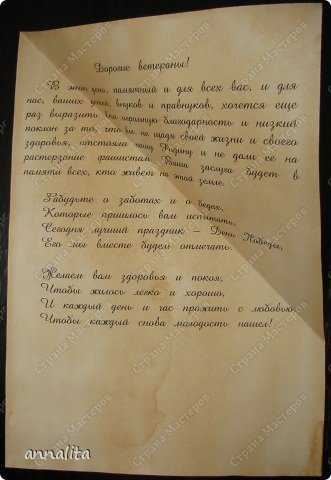 Дорогие ветераны!
В этот день, памятный и для всех вас, и для
нас, ваших детей, внуков и правнуков, хочется еще
раз выразить вам огромную благодарность и низкий
поклон за то, что вы, не щадя своей жизни и своего
здоровья, отстояли нашу Родину и не дали ее на
растерзание фашистам. Ваша заслуга будет в
памяти всех, кто живет на этой земле.
Забудьте о заботах и о бедах,
Которые пришлось вам испытать,
Сегодня лучший праздник – День Победы,
Его мы вместе будем отмечать.
Желаем вам здоровья и покоя,
Чтобы жилось легко и хорошо,
И каждый день и час прожить с любовью,
Чтобы каждый снова молодость нашел!
annalita
Страна Мастеров